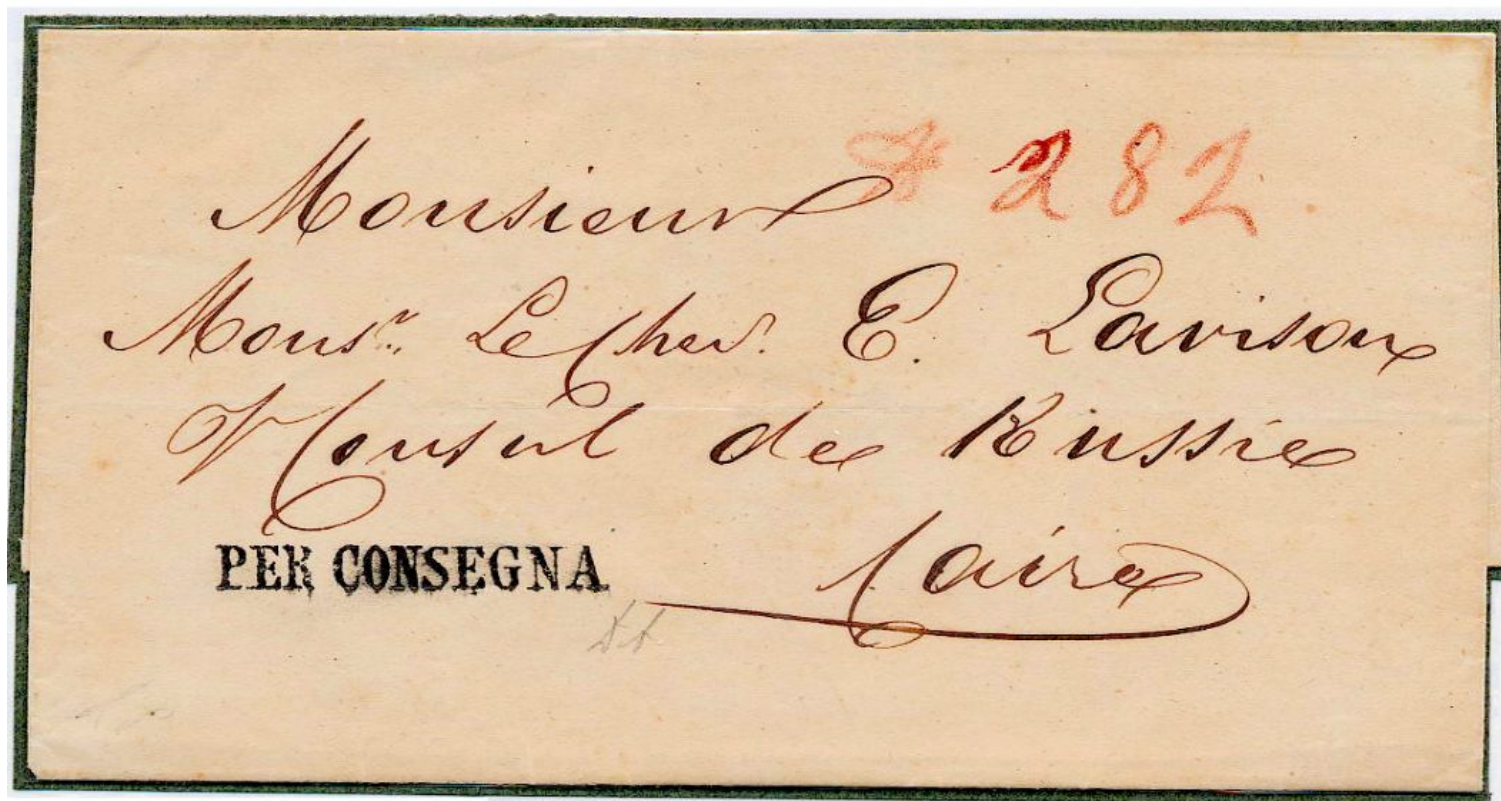 # 282
Monsieur
Monsr. Le Chev. E. Lavison
V Consul de Russie
PER CONSEGNA
Caire